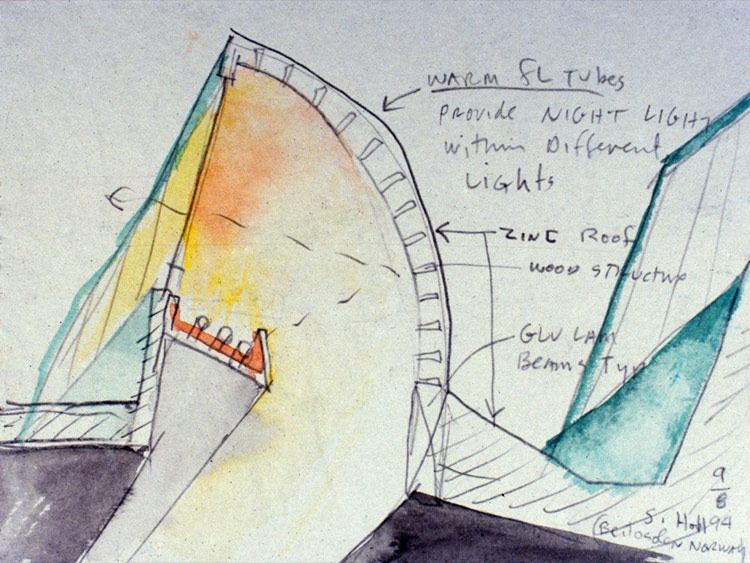 WARM FL TUBES
PROVIDE NIGHT LIGHT
within DIFFerent
LIGHTS
ZINC ROOF
WOOD STRUCTURE
GLU LAM
Beams Typ
9
8
S. Holl 94
NORWAY